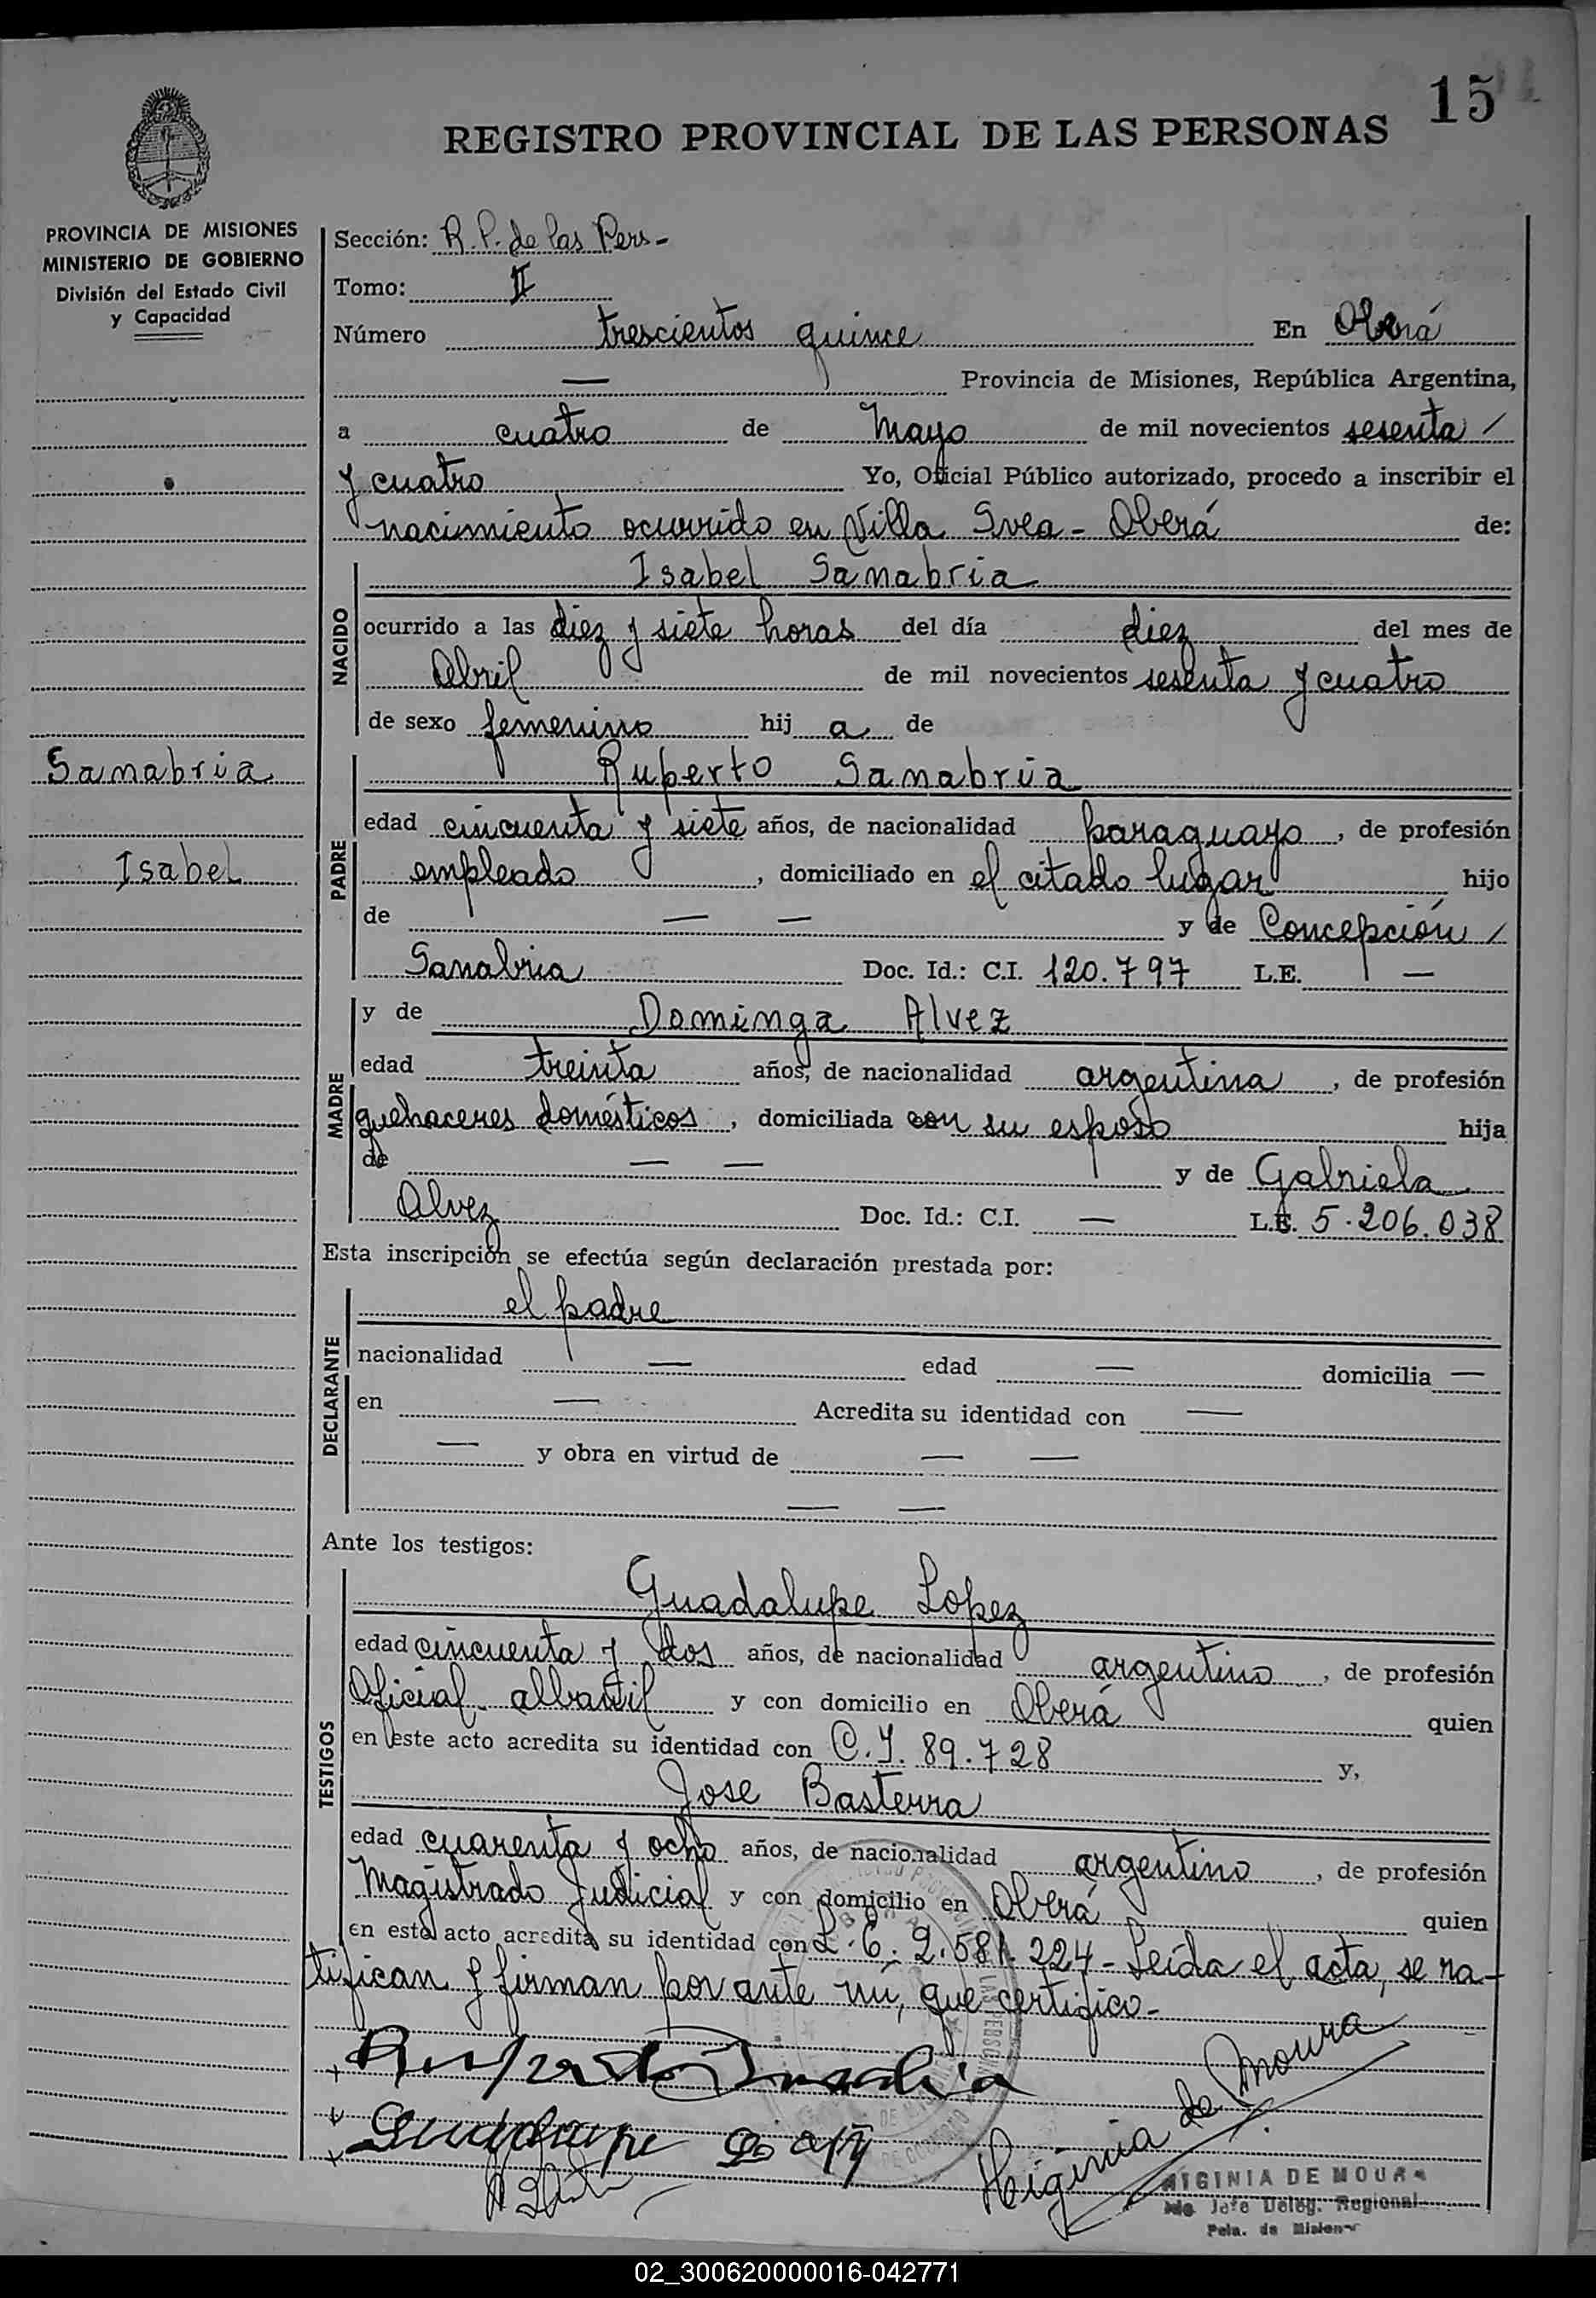 15
REGISTRO PROVINCIAL DE LAS PERSONAS
PROVINCIA DE MISIONES
MINISTERIO DE GOBIERNO
División del Estado Civil
y Capacidad
Sanabria
Isabel
Sección: R.P. de las Pers-
Tomo: II
Número trescientos quince En Oberá
— Provincia de Misiones, República Argentina,
a cuatro de Mayo de mil novecientos sesenta /
y cuatro Yo, Oficial Público autorizado, procedo a inscribir el
nacimiento ocurrido en Villa Svea - Oberá de:
NACIDO
Isabel Sanabria
ocurrido a las diez y siete horas del día diez del mes de
Abril de mil novecientos sesenta y cuatro
de sexo femenino hij a de
PADRE
Ruperto Sanabria
edad cincuenta y siete años, de nacionalidad paraguayo, de profesión
empleado, domiciliado en el citado lugar hijo
de — — y de Concepción /
Sanabria Doc. Id.: C.I. 120.797 L.E. —
MADRE
y de Dominga Alvez
edad treinta años, de nacionalidad argentina, de profesión
quehaceres domésticos, domiciliada con su esposo hija
de — — y de Gabriela
Alvez Doc. Id.: C.I. — L.E. 5.206.038
Esta inscripción se efectúa según declaración prestada por:
DECLARANTE
el padre
nacionalidad — edad — domicilia —
en — Acredita su identidad con —
— y obra en virtud de — —
— —
Ante los testigos:
TESTIGOS
Guadalupe Lopez
edad cincuenta y dos años, de nacionalidad argentino, de profesión
Oficial albañil y con domicilio en Oberá quien
en este acto acredita su identidad con C.I. 89.728 y,
Jose Basterra
edad cuarenta y ocho años, de nacionalidad argentino, de profesión
Magistrado Judicial y con domicilio en Oberá quien
en este acto acredita su identidad con L.E. 2.581.224 - Leída el acta, se ra-
tifican y firman por ante mí, que certifico.-
Higinia de Moura
HIGINIA DE MOURA
Jefe Deleg. Regional
Pcia. de Misiones
02_300620000016-042771